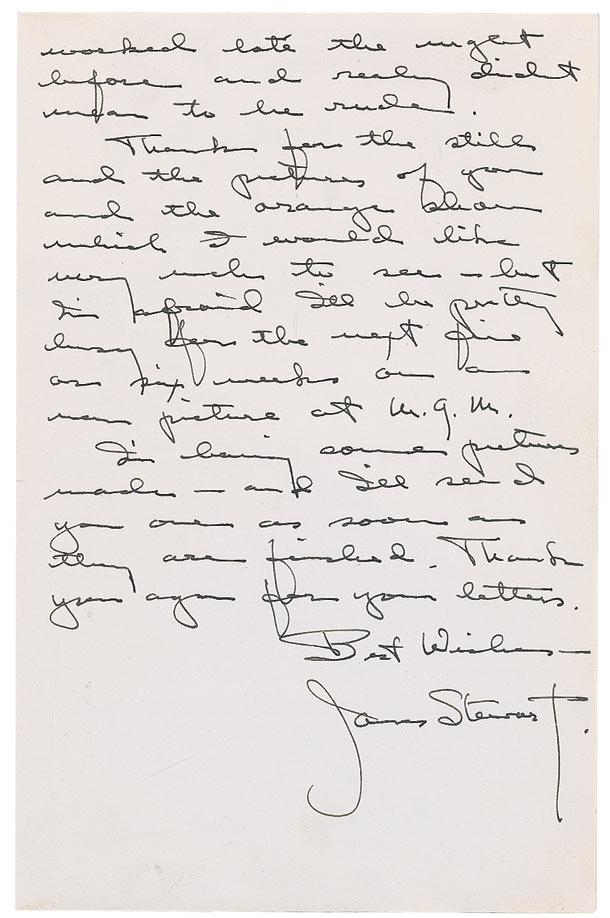 worked late the night
before and really didn't
mean to be rude.
Thanks for the stills
and the pictures of you
and the orange show
which I would like
very much to see – but
I'm afraid I'll be pretty
busy for the next five
or six weeks on a
new picture at M.G.M.
I'm having some pictures
made – and I'll send
you one as soon as
they are finished. Thank
you again for your letters.
Best Wishes –
James Stewart.